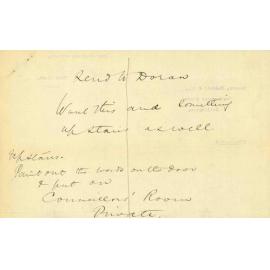 Send W Doran
Want this and
upstairs as well
Upstairs.
Paint out the words on the door
& put on
Councillors' Room
Private.